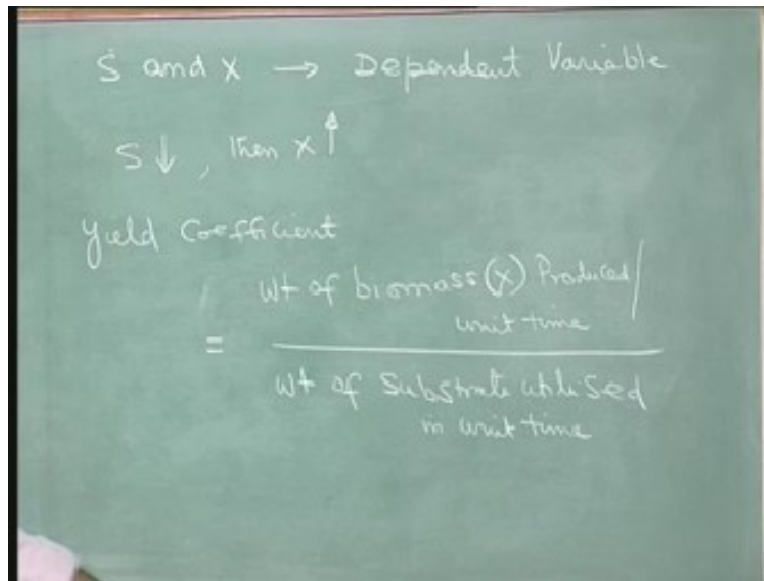 S and x → Dependent Variable
S ↓, then x ↑
Yield Coefficient
Wt of biomass (x) Produced/
unit time
=
Wt of Substrate utilised
in unit time